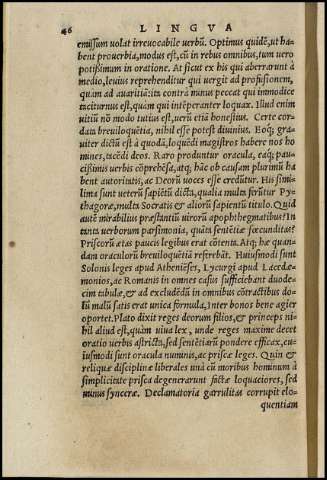 46 LINGVA
emissum uolat irreuocabile uerbū. Optimus quidē, ut ha-
bent prouerbia, modus est, cū in rebus omnibus, tum uero
potissimum in oratione. At sicut ex his qui aberrarunt à
medio, leuius reprehenditur qui uergit ad profusionem,
quàm ad auaritiā: ita contrà minus peccat qui immodice
taciturnus est, quàm qui intēperanter loquax. Illud enim
uitiū nō modo tutius est, uerū etiā honestius. Certe cor-
data breuiloquētia, nihil esse potest diuinius. Eoq; gra-
uiter dictū est à quodā, loquēdi magistros habere nos ho
mines, tacēdi deos. Raro produntur oracula, eaq; pau-
cissimis uerbis cōprehēsa, atq; hāc ob causam plurimū ha
bent autoritatis, ac Deorū uoces esse credūtur. His simi-
lima sunt ueterū sapiētū dicta, qualia multa ferūtur Py-
thagoræ, multa Socratis & aliorū sapientū titulo. Quid
autē mirabilius præstantiū uirorū apophthegmatibus? In
tanta uerborum parsimonia, quāta sentētiæ fœcunditas?
Priscorū ætas paucis legibus erat cōtenta. Atq; hæ quan-
dam oraculorū breuiloquētiā referebāt. Huiusmodi sunt
Solonis leges apud Athenieses, Lycurgi apud Lacedæ-
monios, ac Romanis in omnes casus sufficiebant duode-
cim tabulæ, & ad excludēdū in omnibus cōtractibus do-
lū malū satis erat unica formula, Inter bonos bene agier
oportet. Plato dixit reges deorum filios, & princeps ni-
hil aliud est, quàm uiua lex, unde reges maxime decet
oratio uerbis astricta, sed sentētiarū pondere efficax, cu-
iusmodi sunt oracula numinis, ac priscæ leges. Quin &
reliquæ disciplinæ liberales unà cū moribus hominum à
simplicitate prisca degenerarunt factæ loquaciores, sed
minus synceræ. Declamatoria garrulitas corrupit elo-
quentiam